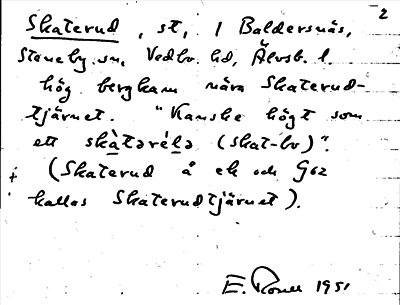 2
Skaterud, st, i Baldersnäs,
Steneby sn, Vedbo hd, Älvsb. l.
hög bergkam nära Skaterud-
tjärnet. "Kanske högt som
ett skàtəréLə (skat-bo)".
(Skaterud å ek och G62
kallas Skaterudtjärnet).
E. 1951